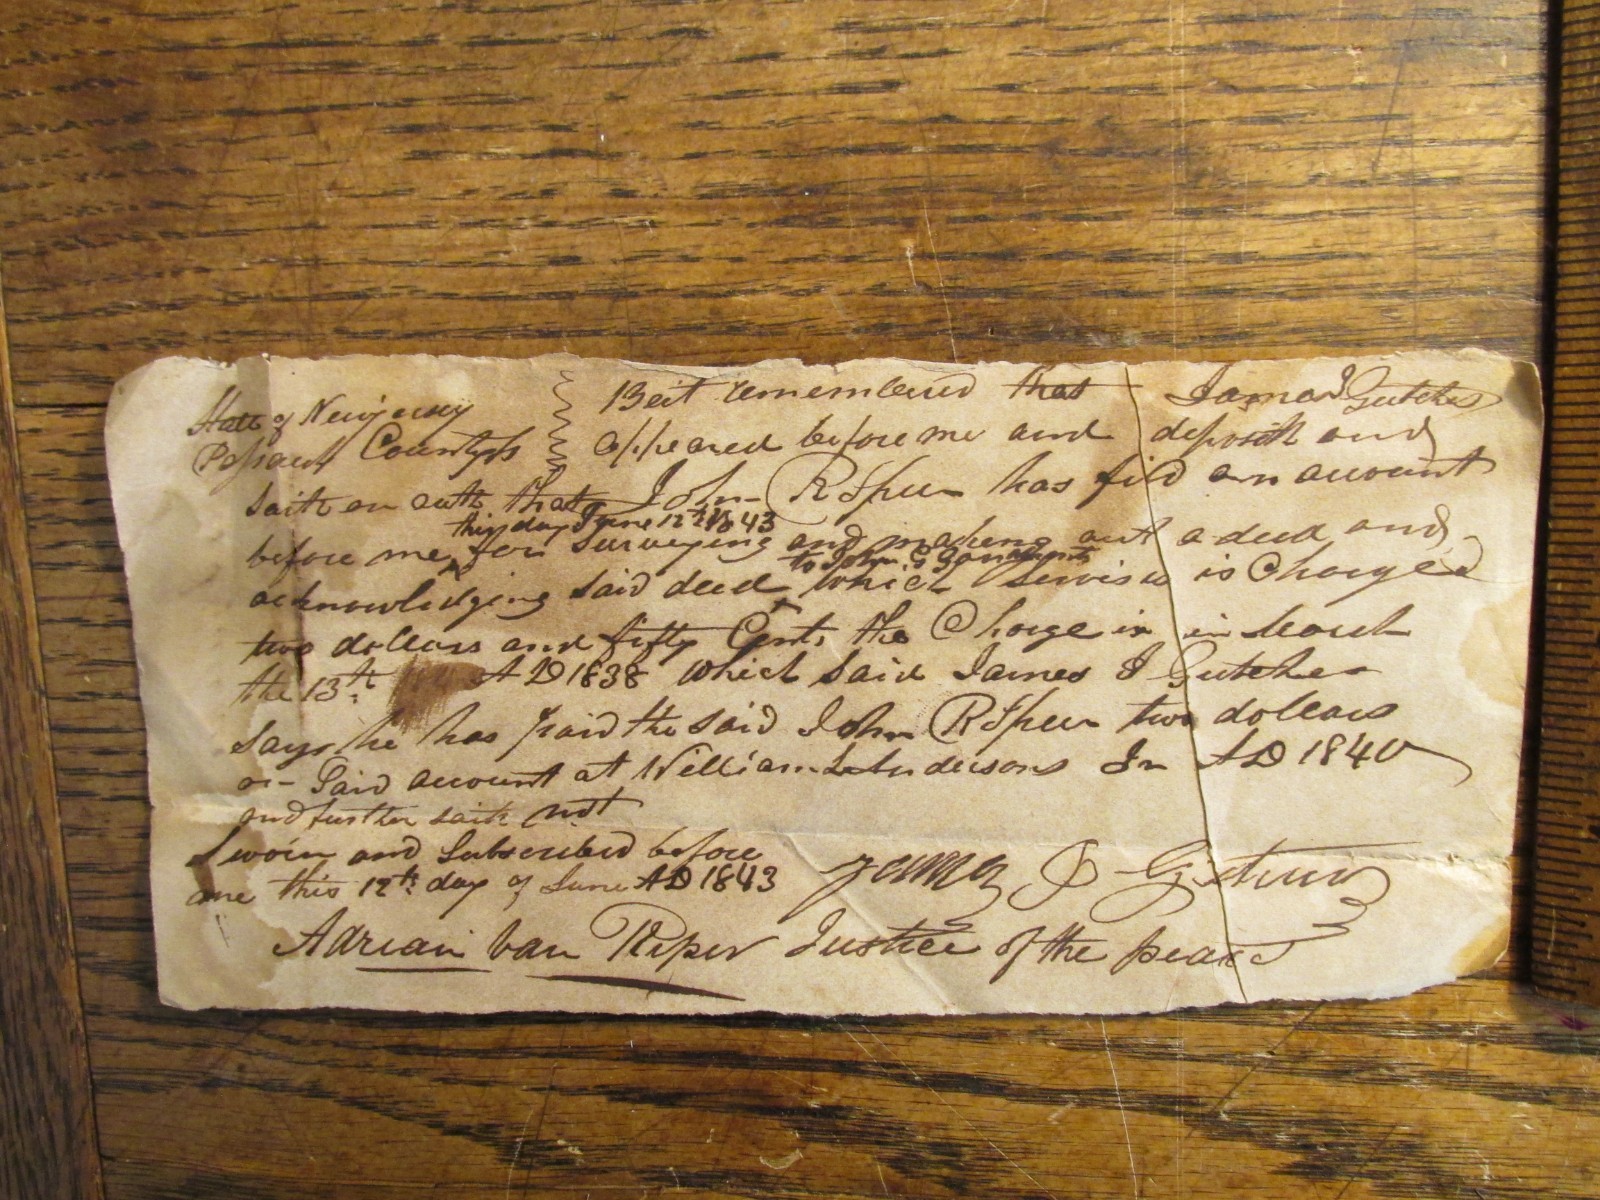 State of Newjersey
Passaic County ss
Beit remembered that James J Gutches
appeared before me and deposith and
saith on oath that John R Speer has fild an account
this day June 12th 1843
before me for Surveying and making out a deed and
to John G
acknowledging said deed which servises is Charged
two dollars and fifty Cents the Charge is in March
the 13th AD 1838 which said James J Gutches
says he has paid the said John R Speer two dollars
on Said account at William Andersons In AD 1840
and further saith not
Sworn and Subscribed before
me this 12th day of June AD 1843
James J
Adrian van Riper Justice of the peace